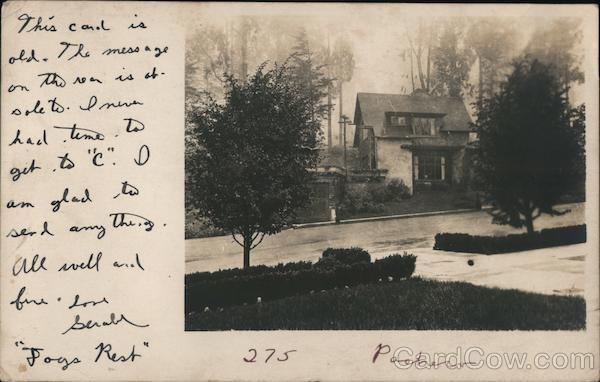 This card is
old. The message
on the rear is ob-
solete. I never
had time to
get to "C". I
am glad to
send anything.
All well and
fine. Love
"Fogs Rest"
275
CardCow.com